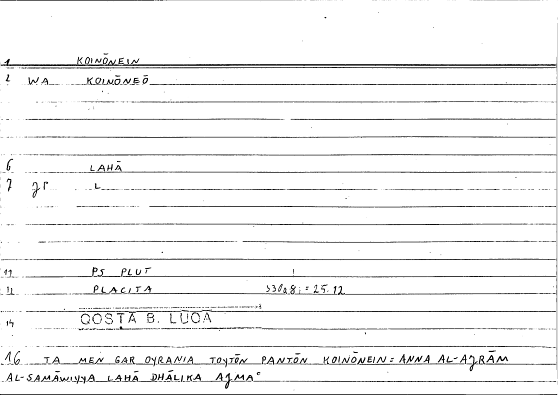 1 KOINŌNEIN
2 WA KOINŌNEŌ
6 LAHĀ
7 L
11 PS PLUT
12 PLACITA
14 QOSTĀ B. LŪQĀ
16 TA MEN GAR OYRANIA TOYTŌN PANTŌN KOINŌNEIN = ANNA AL-AJRĀM
AL-SAMĀWIYYA LAHĀ DHĀLIKA AJMAʿ